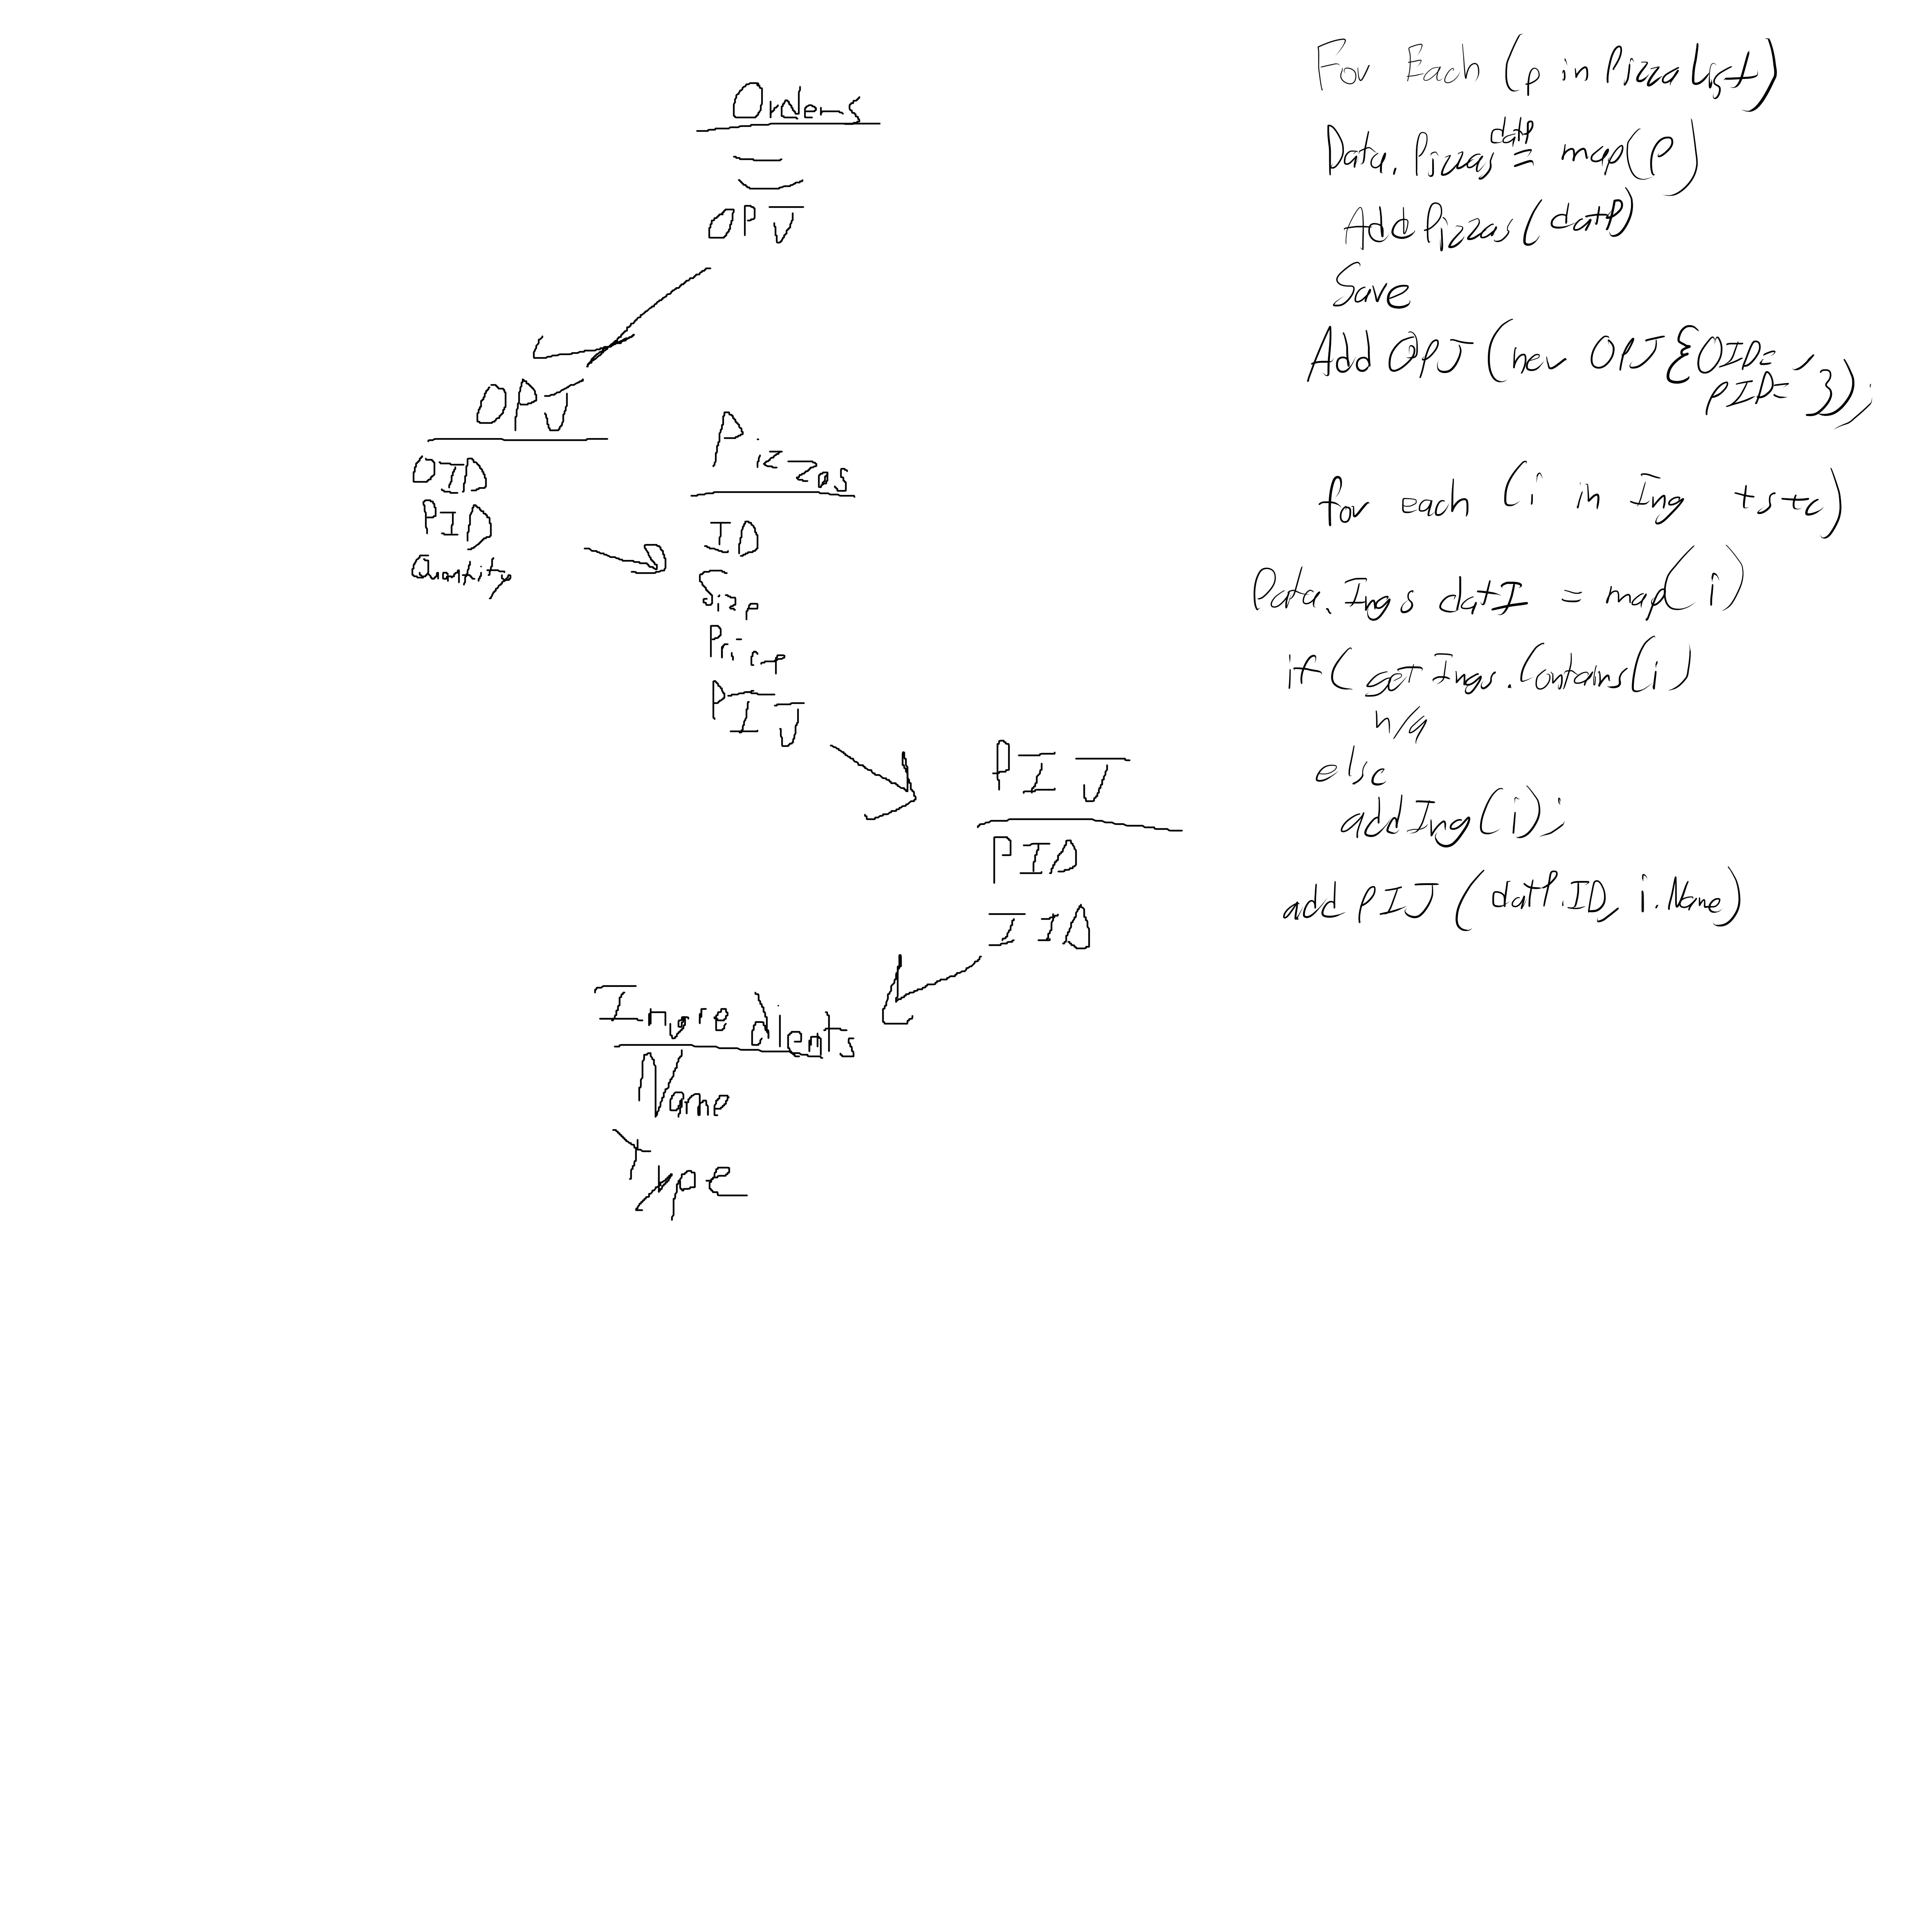 Orders
OPJ
OPJ
OID
PID
Quantity
Pizzas
ID
Size
Price
PIJ
PIJ
PID
IID
Ingredients
Name
Type
For Each (p in PizzaList)
Data.Pizzas datP = map(p)
Add Pizzas (datP)
Save
Add OPJ (new OPJ {OID= ,
PID= '});
for each (i in Ing +s+c)
Data.Ings datI = map(i)
if( getIngs.Contains(i)
n/a
else
addIng(i);
add PIJ (datP.ID, i.Name)